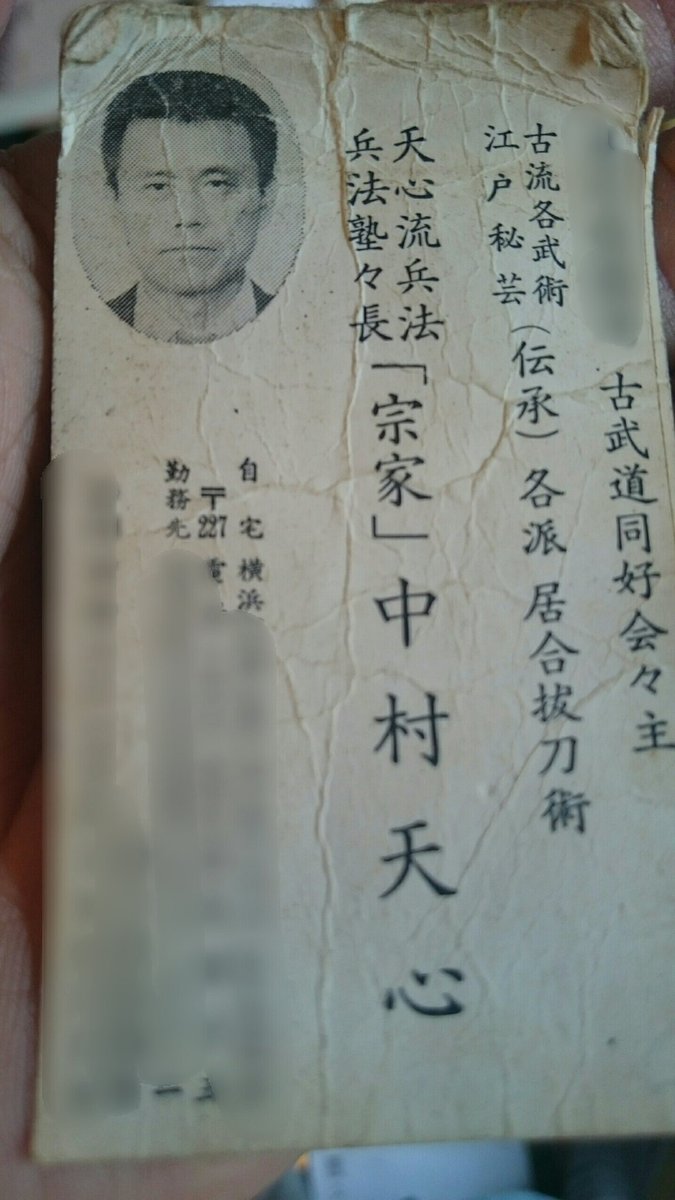 古武道同好会々主
古流各武術
江戸秘芸
(伝承)各派居合抜刀術
天心流兵法
兵法塾々長
「宗家」中村天心
自宅 横浜
〒227 電
勤務先